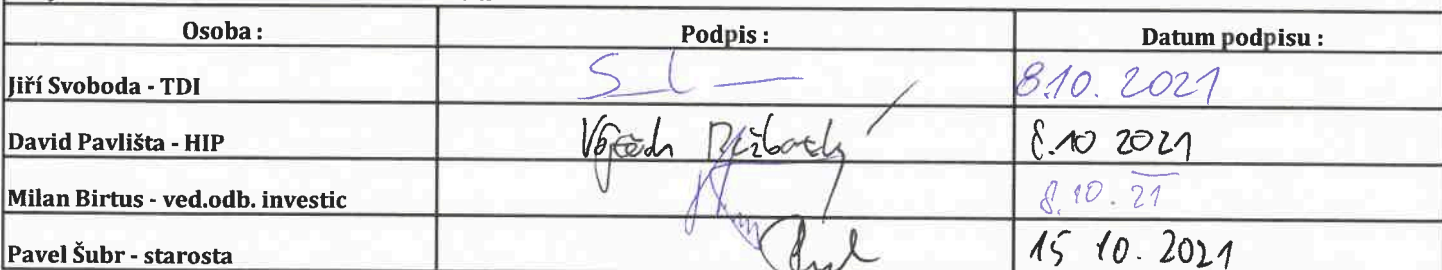 Osoba : Podpis : Datum podpisu :
Jiří Svoboda - TDI 8.10. 2021
David Pavlišta - HIP Vojtěch 8.10 2021
Milan Birtus - ved.odb. investic 8.10.21
Pavel Šubr - starosta 15 10. 2021